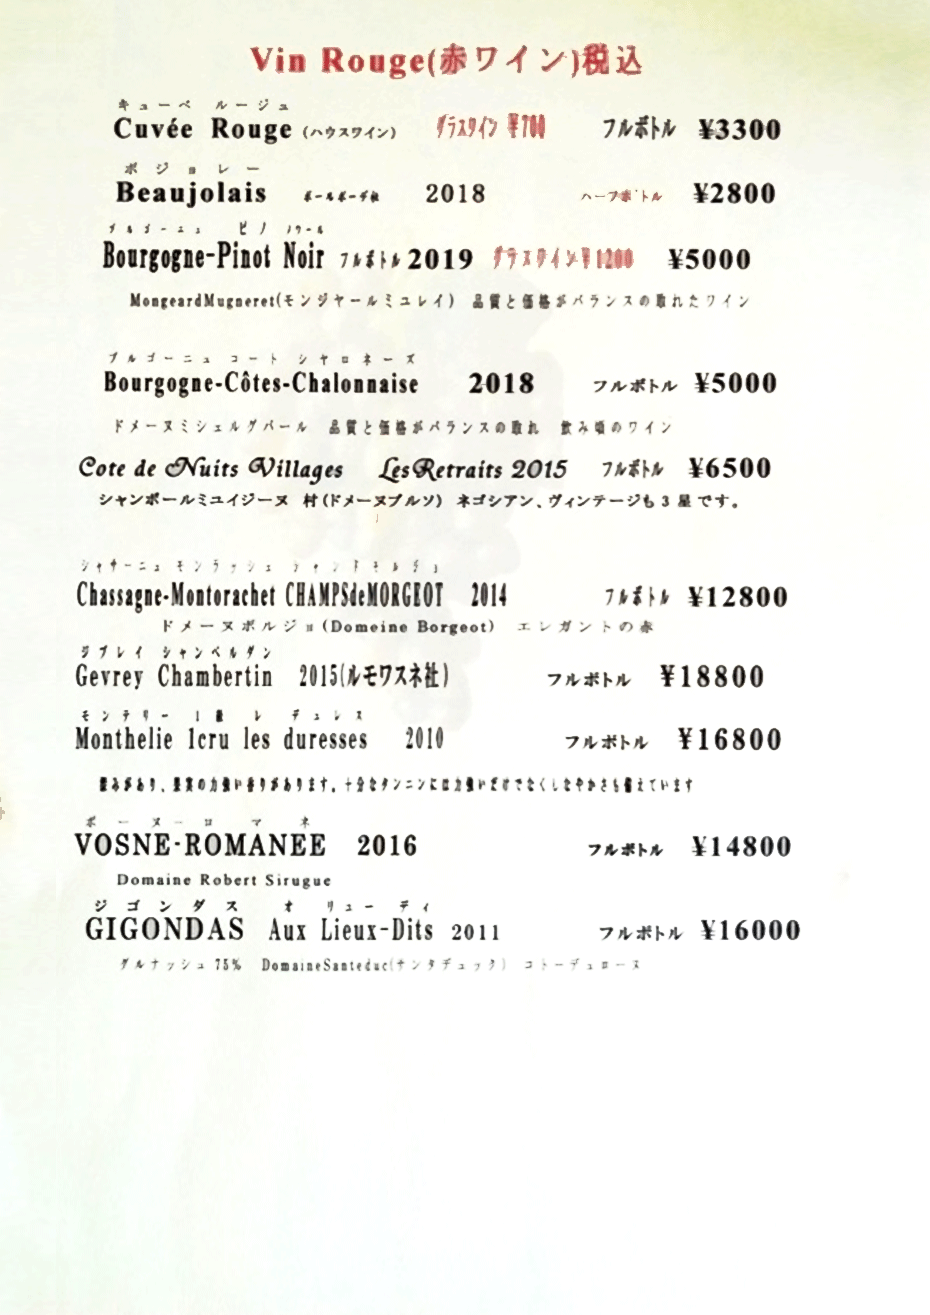 Vin Rouge(赤ワイン)税込
キューベ ルージュ
Cuvée Rouge (ハウスワイン) グラスワイン ¥700 フルボトル ¥3300
ボジョレー
Beaujolais ポールボーデ社 2018 ハーフボトル ¥2800
ブルゴーニュ ピノ ノワール
Bourgogne-Pinot Noir フルボトル 2019 グラスワイン¥1200 ¥5000
MongeardMugneret(モンジャールミュレイ) 品質と価格がバランスの取れたワイン
ブルゴーニュ コート シャロネーズ
Bourgogne-Côtes-Chalonnaise 2018 フルボトル ¥5000
ドメーヌミシェルグバール 品質と価格がバランスの取れ 飲み頃のワイン
Cote de Nuits Villages Les Retraits 2015 フルボトル ¥6500
シャンボールミュイジーヌ 村(ドメーヌブルソ) ネゴシアン、ヴィンテージも3星です。
シャサーニュ モンラッシュ
Chassagne-Montorachet CHAMPSdeMORGEOT 2014 フルボトル ¥12800
ドメーヌボルジョ(Domeine Borgeot) エレガントの赤
ジブレイ シャンベルダン
Gevrey Chambertin 2015(ルモワスネ社) フルボトル ¥18800
モンテリー 1級 レ デュレス
Monthelie 1cru les duresses 2010 フルボトル ¥16800
重みがあり、果実の力強い香りがあります。十分なタンニンには力強いだけでなくしなやかさも備えています
ボーヌーロマネ
VOSNE-ROMANEE 2016 フルボトル ¥14800
Domaine Robert Sirugue
ジゴンダス オ リューディ
GIGONDAS Aux Lieux-Dits 2011 フルボトル ¥16000
グルナッシュ75% DomaineSanteduc(サンタデュック) コトーデュローヌ